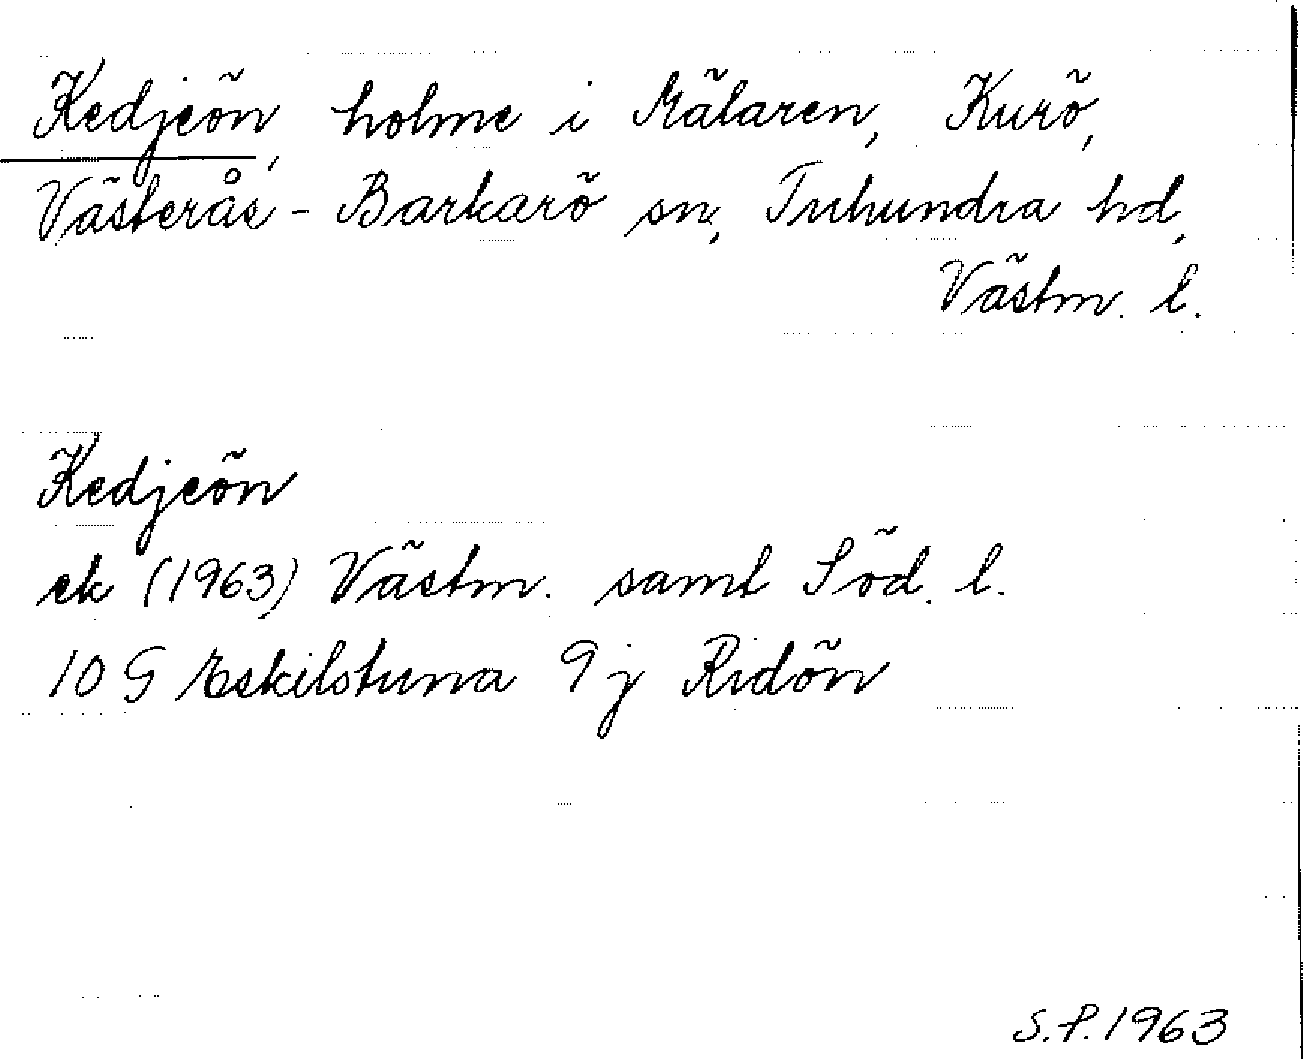 Kedjeön, holme i Mälaren, Kurö,
Västerås-Barkarö sn, Tuhundra hd,
Västm. l.
Kedjeön
ek (1963) Västm. samt Söd. l.
10 G Eskilstuna 9 j Ridön
S.P. 1963